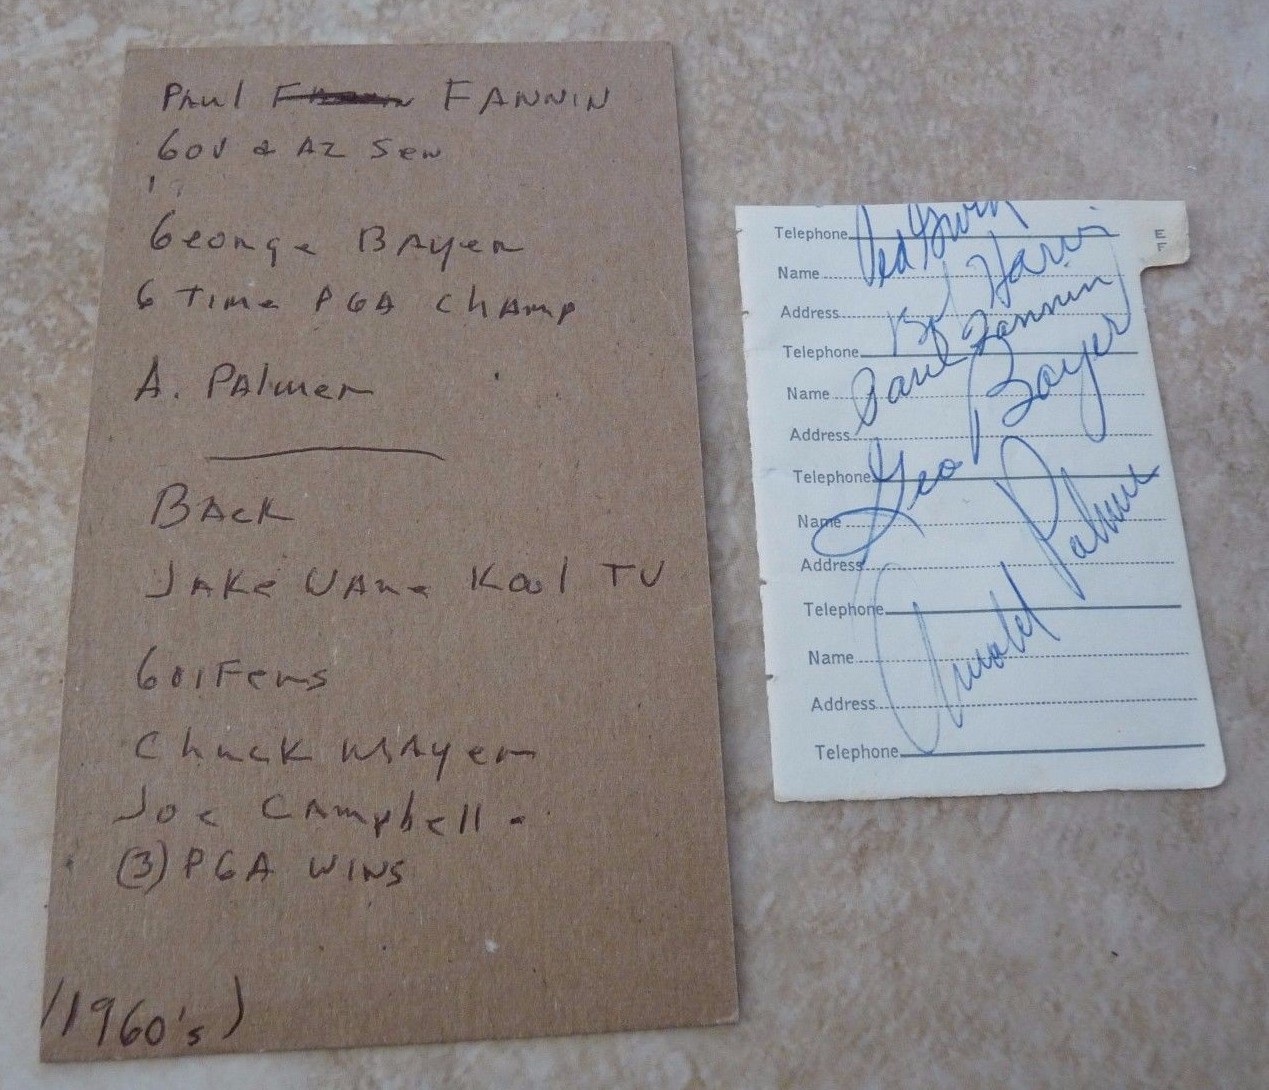 Paul FANNIN
GOV & AZ Sen
George BAyer
6 Time PGA ChAmp
A. PAlmer
BAck
JAKe VAne Kool TV
Golfers
Chuck MAyer
Joe CAmpbell.
(3) PGA WINS
(1960's)
E
F
Telephone
Name
Address
Bob Harris
Telephone
Paul Fannin
Name
Address
Geo Bayer
Telephone
Name
Address
Arnold Palmer
Telephone
Name
Address
Telephone